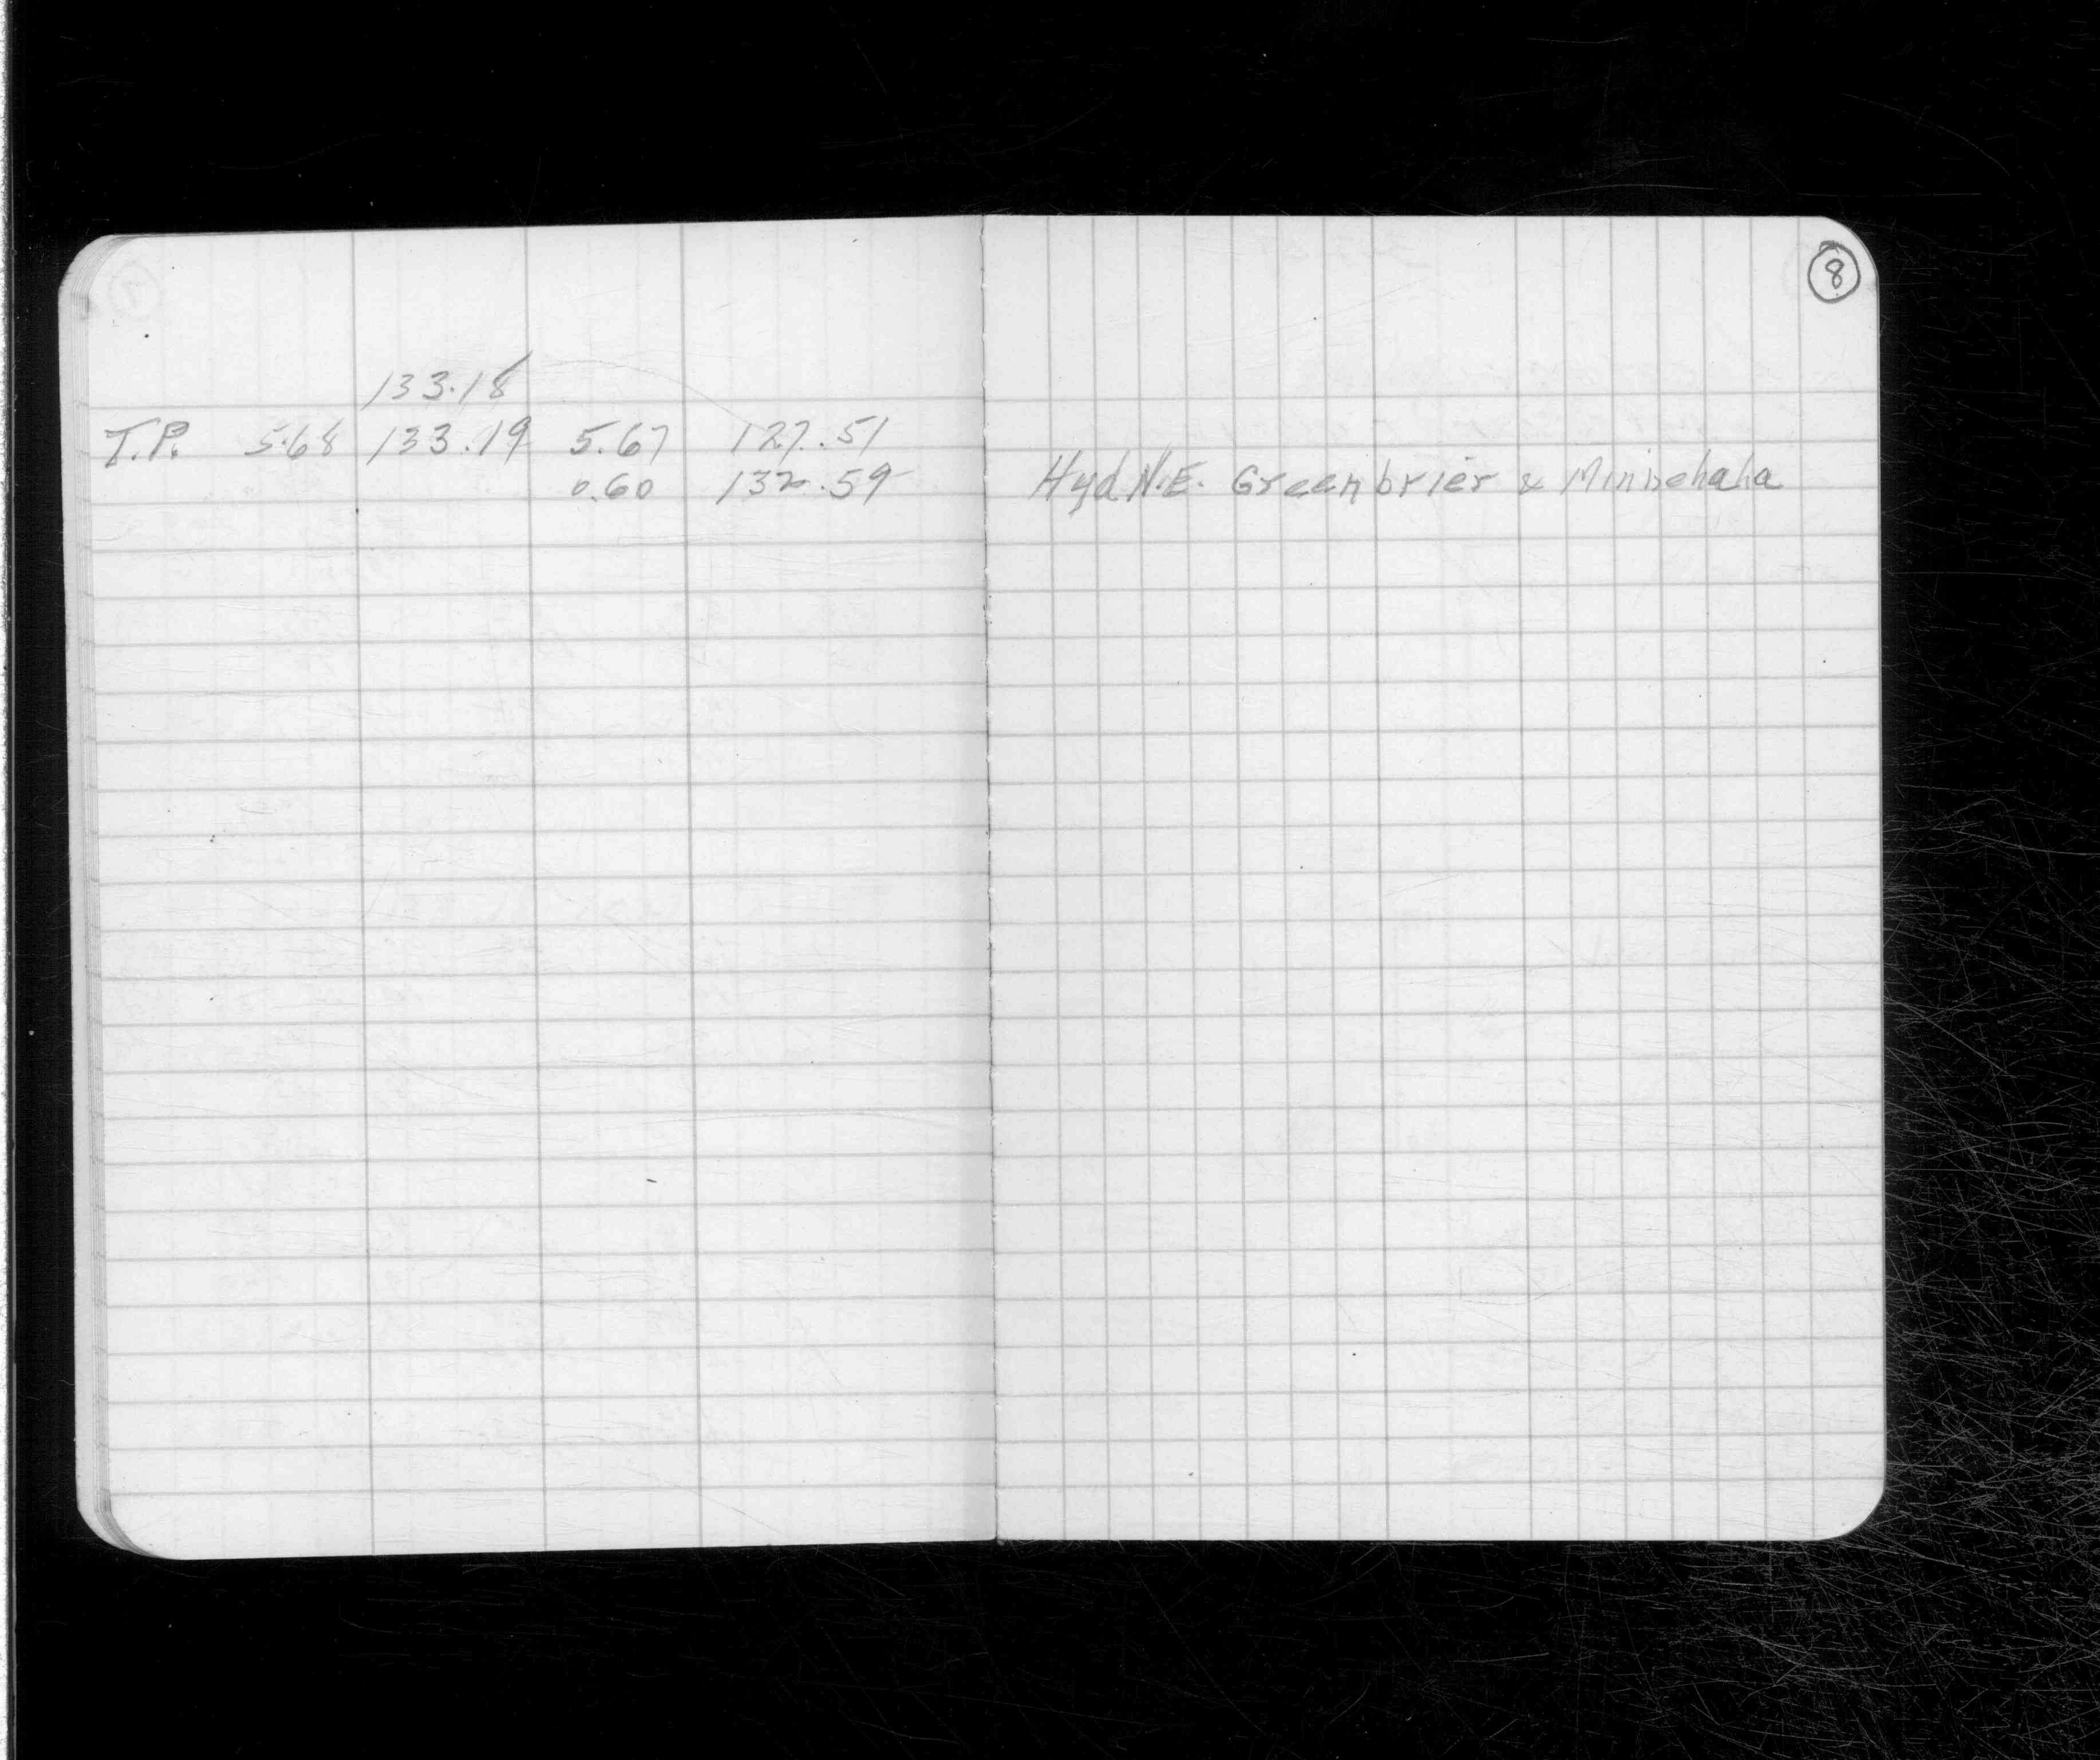 8
133.18
T.P. 5.68 133.19 5.67 127.51
0.60 132.59 Hyd N.E. Greenbrier & Minnehaha